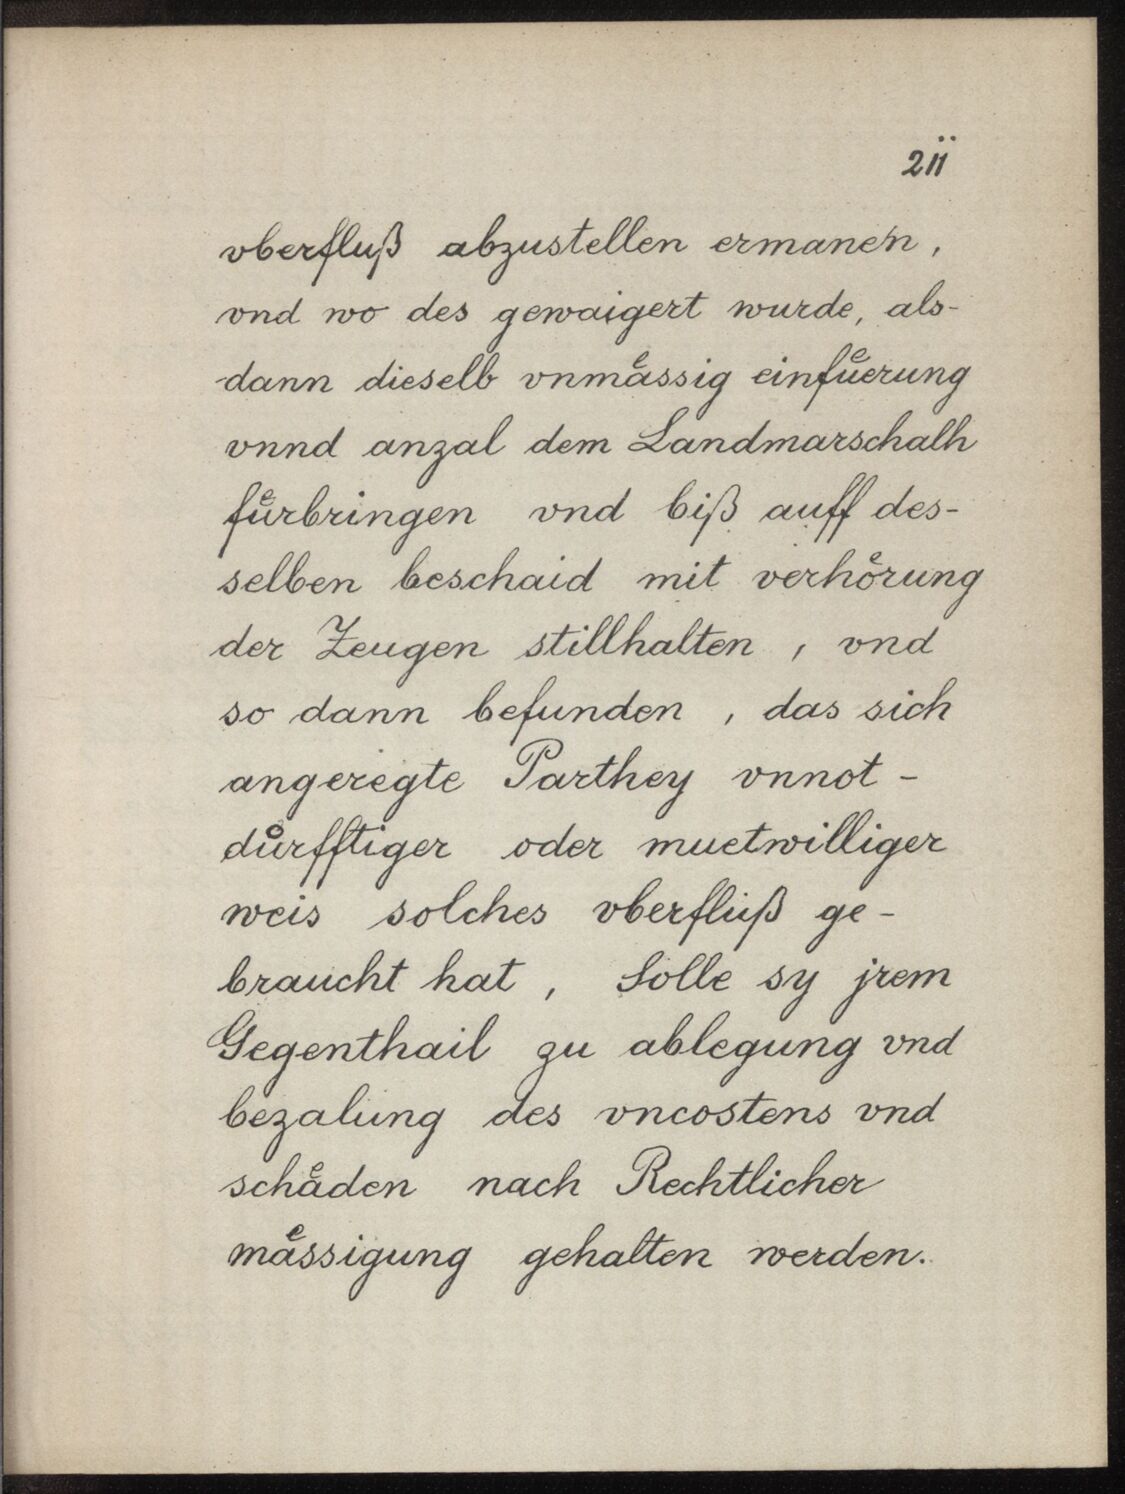 211
vberfluß abzustellen ermanen,
vnd wo des gewaigert wurde, als-
dann dieselb vnmaͤssig einfuͤerung
vnnd anzal dem Landmarschalh
fuͤrbringen vnd biß auff des-
selben beschaid mit verhoͤrung
der Zeugen stillhalten, vnd
so dann befunden, das sich
angeregte Parthey vnnot-
duͤrfftiger oder muetwilliger
weis solches vberfluß ge-
braucht hat, Solle sy jrem
Gegenthail zu ablegung vnd
bezalung des vncostens vnd
schaͤden nach Rechtlicher
maͤssigung gehalten werden.